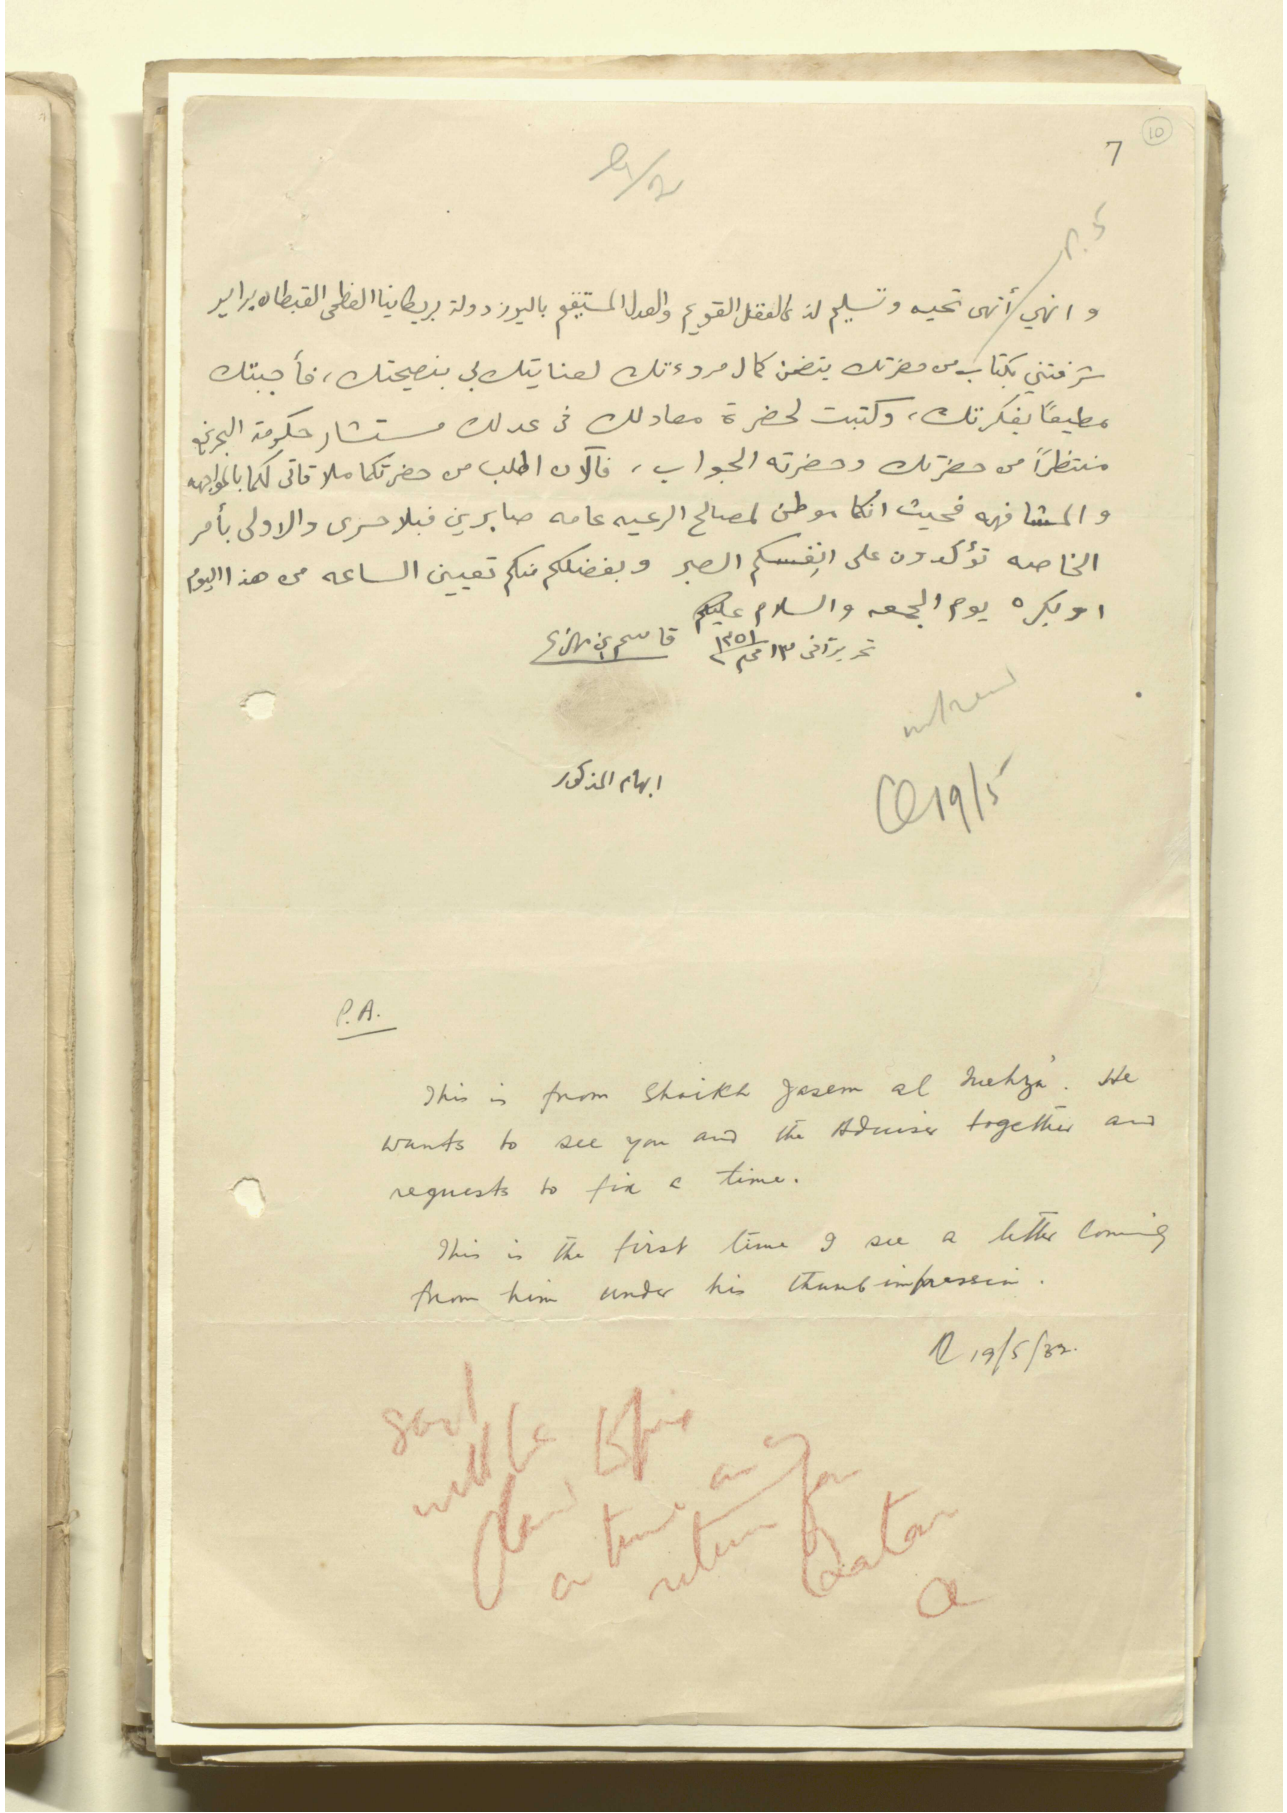 10
7
9/2
P. 5
وانهي أنهى تحيه وتسليم لذي العقل القويم والعدل المستقيم باليوز دولة بريطانيا العظمى القبطان برایر
شرفتني بكتاب من حضرتك يتضمن كمال مروءتك لعنايتك بي بنصيحتك، فأجبتك
مطيعاً بفكرتك، وكتبت لحضرة معادلك في عدلك مستشار حكومة البحرين
منتظراً من حضرتك وحضرته الجواب، فالآن اطلب من حضرتكما ملاقاتي لكما بالمواجهه
والمشافهه فحيث انكما موطن لمصالح الرعيه عامه صابرين فبلاحرى والاولى بأمر
الخاصه تؤكدون على انفسكم الصبر وبفضلكم منكم تعيين الساعه من هذا اليوم
او بكره يوم الجمعه والسلام عليكم
تحريراً في ١٣ محرم ١٣٥١ قاسم بن مهزع
ابهام المذكور
19/5
P.A.
This is from Shaikh Jasem al Mehza'. He
wants to see you and the Adviser together and
requests to fix a time.
This is the first time I see a letter coming
from him under his thumb impression.
19/5/32.
said
will be
glad to fix
a time on my
return from
Qatar